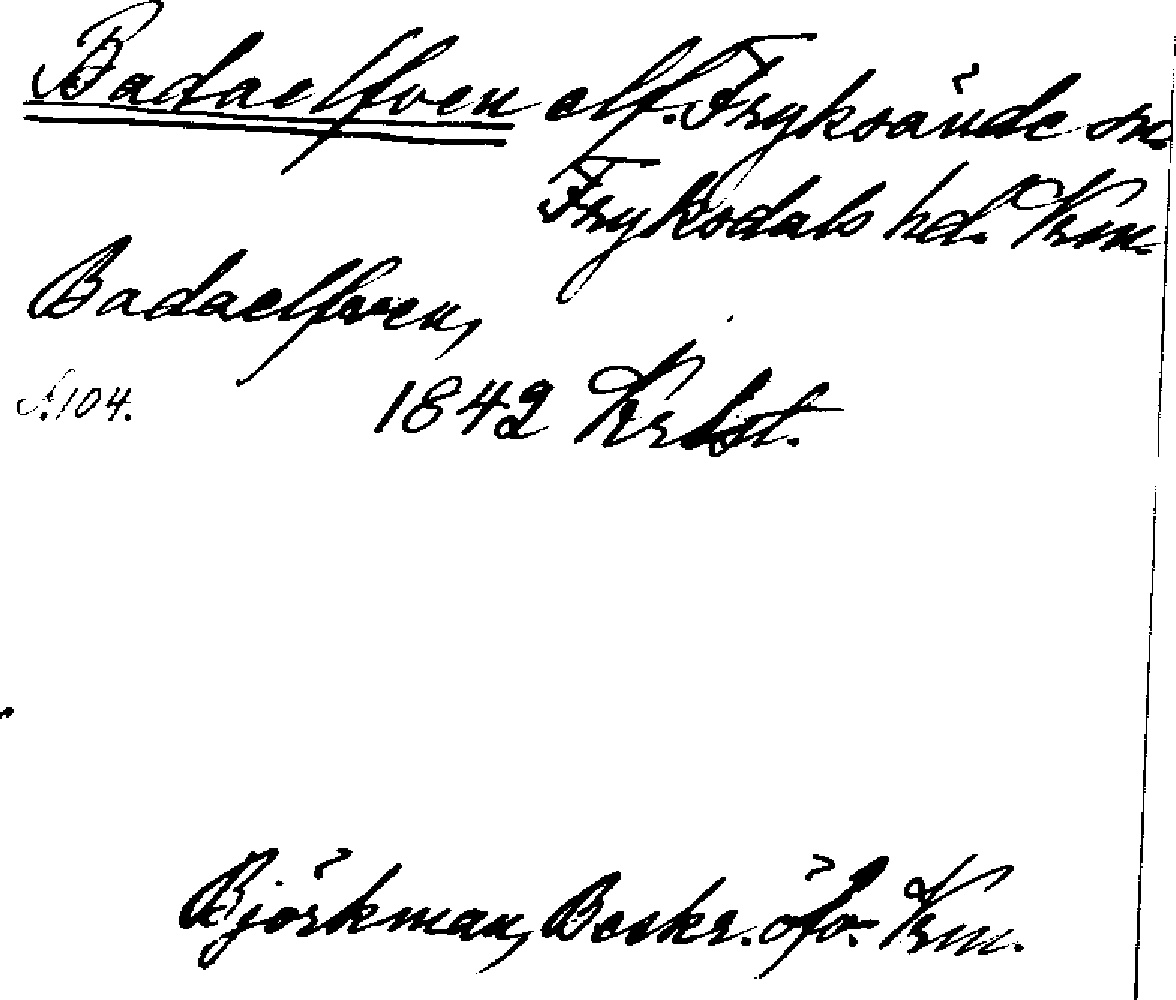 Badaelfven elf. Fryksände sn.
Fryksdals hd. Vrm.
Badaelfven,
S. 104. 1842 Krtst.
Björkman, Beskr. öfv. Vrm.